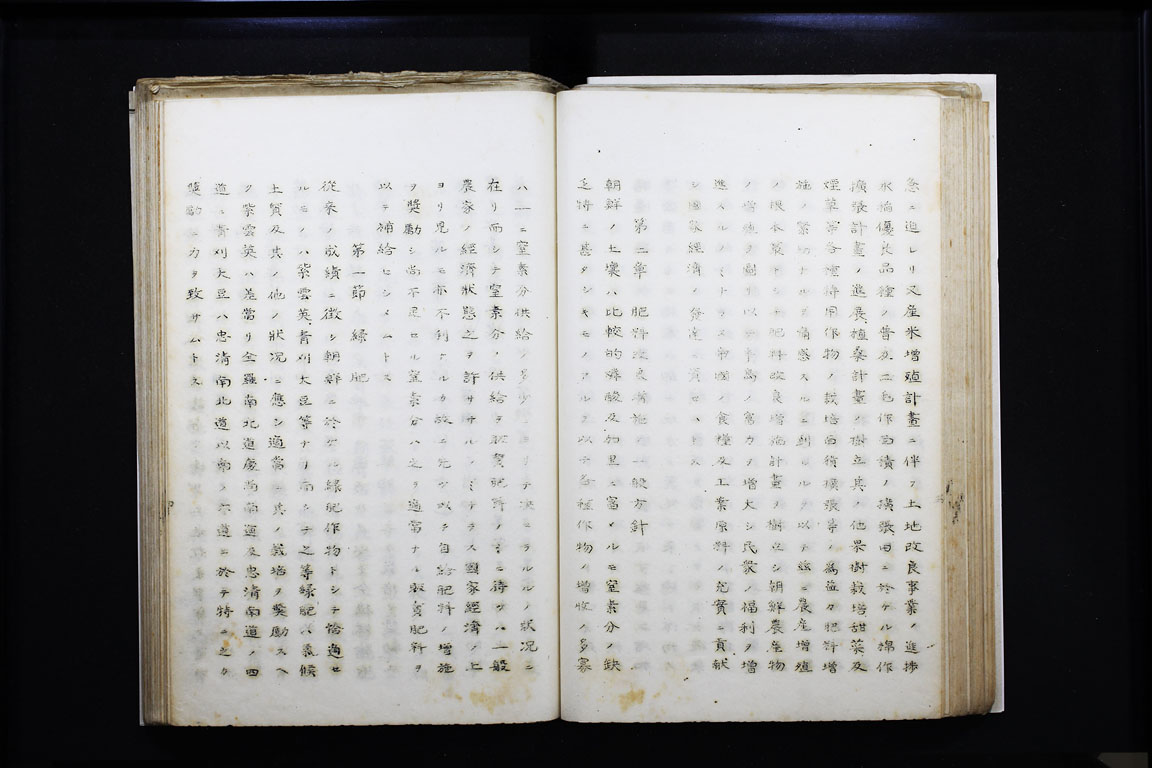 急ニ迫レリ又産米増殖計畫ニ伴フ土地改良事業ノ進捗
水稲優良品種ノ普及二毛作面積ノ擴張田ニ於ケル棉作
擴張計畫ノ進展植桑計畫ノ樹立其ノ他果樹栽培甜菜及
煙草等各種特用作物ノ栽培面積擴張等ノ為益々肥料増
施ノ緊切ナルヲ痛感スルニ到リタルヲ以テ茲ニ農産増殖
ノ根本策トシテ肥料改良増施計畫ヲ樹立シ朝鮮農産物
ノ増殖ヲ圖リ以テ半島ノ富力ヲ増大シ民衆ノ福利ヲ増
進スルノミナラス帝國ノ食糧及工業原料ノ充實ニ貢献
シ國家経済ノ発達ニ資セ
第二章 肥料改良増施ノ一般方針
朝鮮ノ土壌ハ比較的燐酸及加里ニ富メルモ窒素分ノ缺
乏特ニ甚タシキモノアルヲ以テ各種作物ノ増收ノ多寡
ハ一ニ窒素分供給ノ多少ニ ノ状況ニ
在リ而シテ窒素分ノ供給ヲ販賣肥料ノミニ待ツハ一般
農家ノ經濟狀態之ヲ許ササルノミナラス國家經濟ノ上
ヨリ見ルモ亦不利ナルカ故ニ先ツ以テ自給肥料ノ増施
ヲ奬勵シ尚不足セル窒素分ハ之ヲ適當ナル販賣肥料ヲ
以テ補給セシメムトス
第一節 緑肥
從来ノ成績ニ徴シ朝鮮ニ於ケル緑肥作物トシテ恰適セ
ルモノハ紫雲英青刈大豆等ナリ而シテ之等緑肥ハ氣候
土質及其ノ他ノ狀况ニ應シ適當ニ其ノ栽培ヲ奬勵スヘ
ク紫雲英ハ差當リ全羅南北道慶尚南道及忠清南道ノ四
道ニ青刈大豆ハ忠清南北道以南ノ各道ニ於テ特ニ之カ
奬勵ニ力ヲ致サムトス